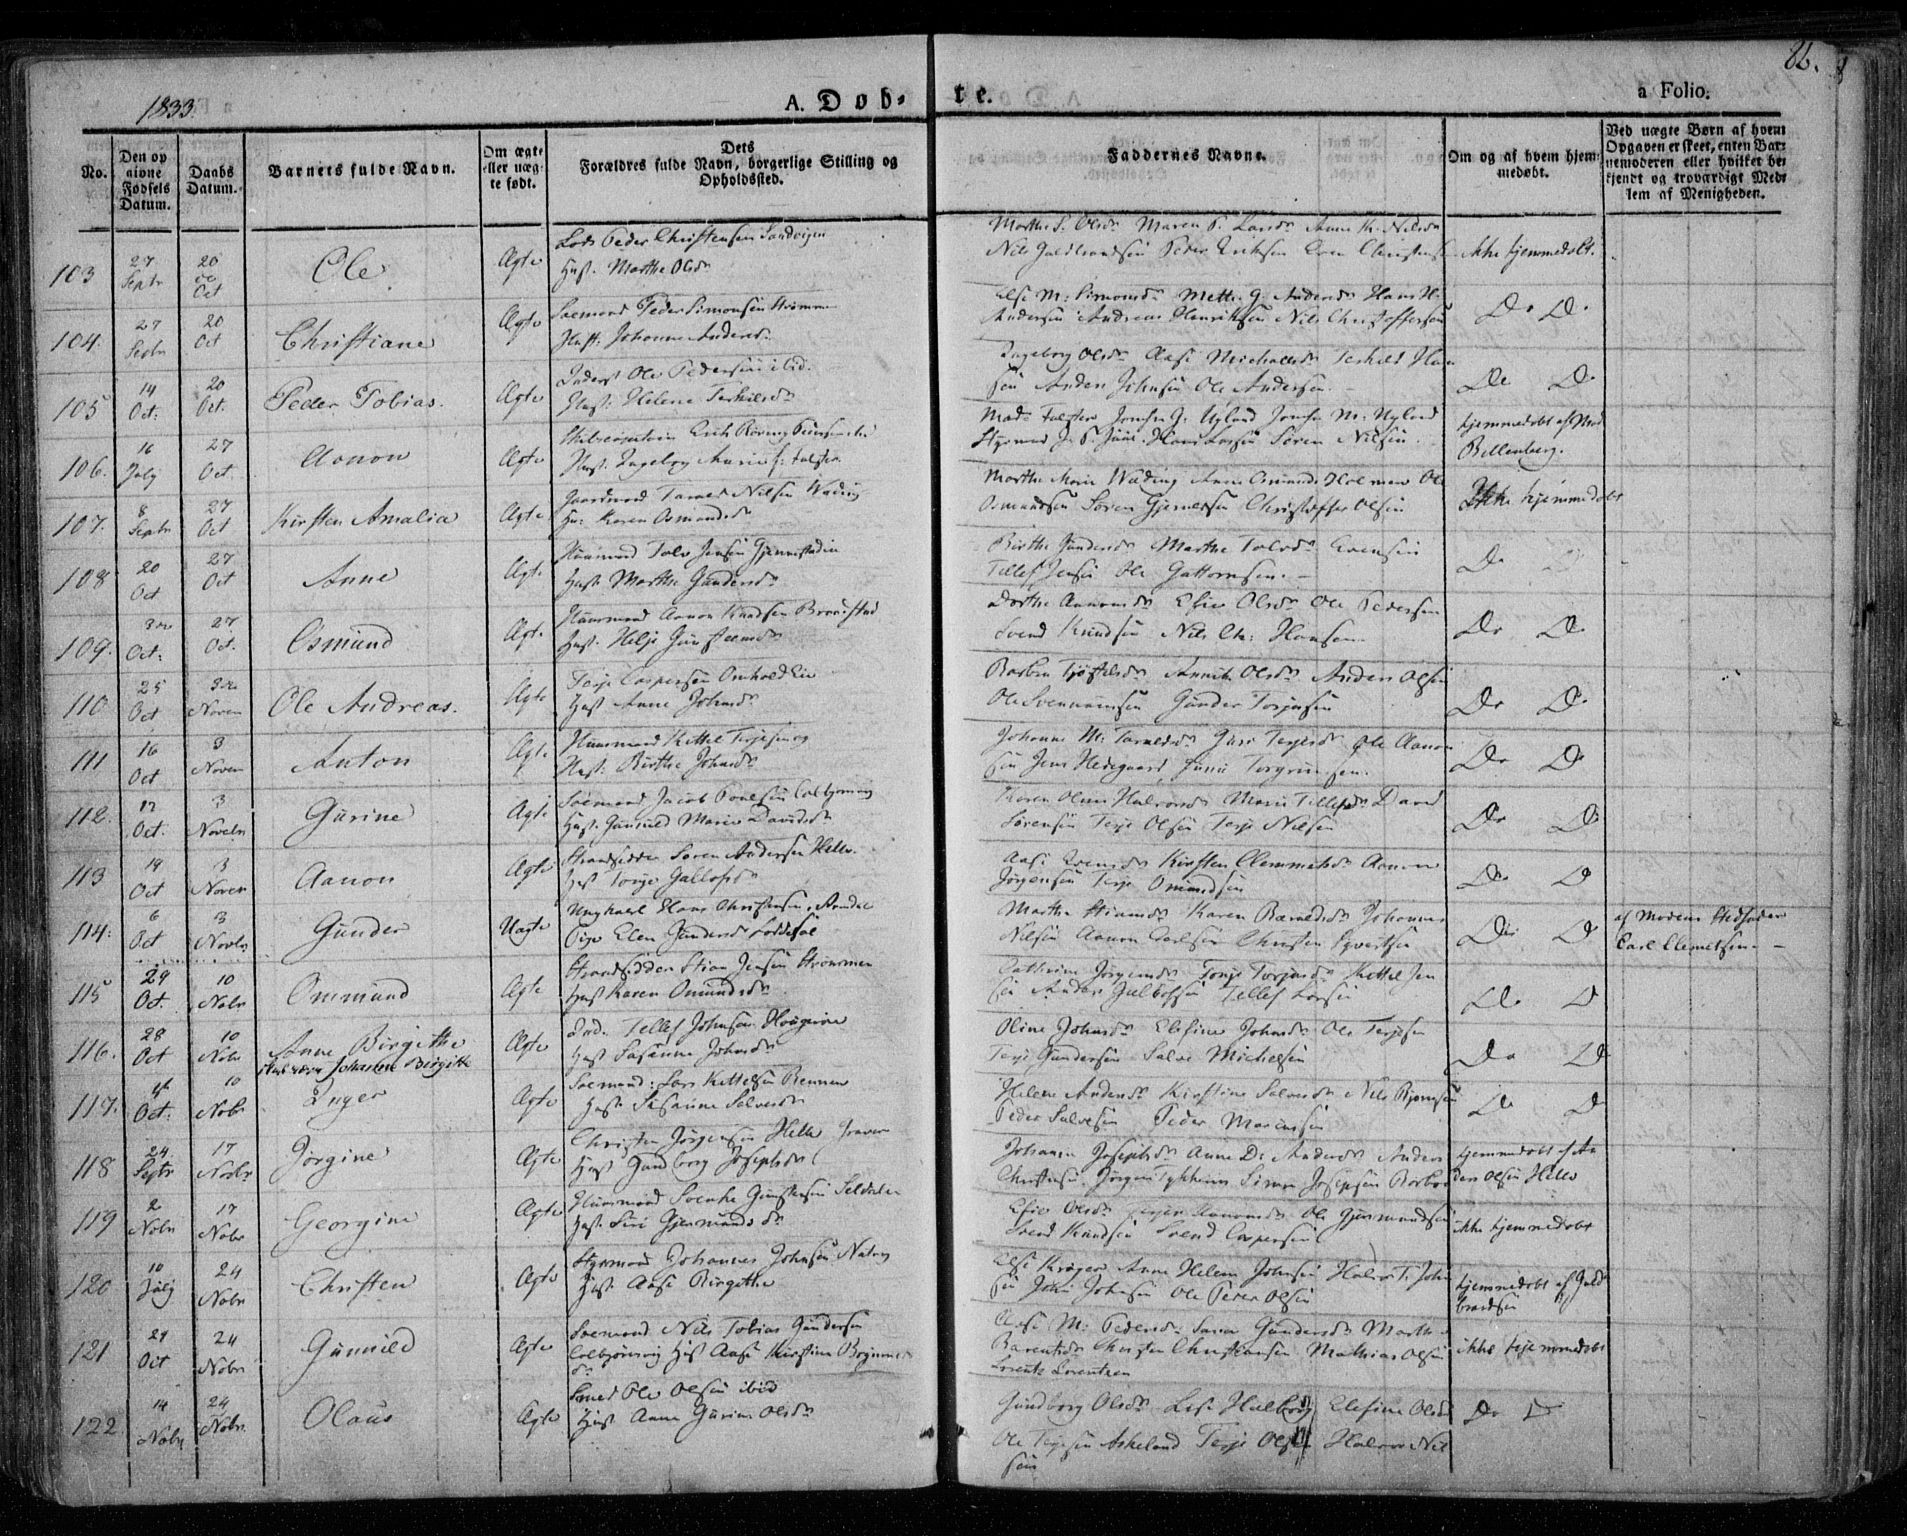 1833.
A. Døb-
te.
86.
a Folio.
No.
Den op
givne
Fødsels
Datum.
Daabs
Datum.
Barnets fulde Navn.
Om ægte
eller uæg-
te født.
Dets
Forældres fulde Navn, borgerlige Stilling og
Opholdssted.
Faddernes Navne.
Om og af hvem hjem-
medøbt.
Ved uægte Børn af hvem
Opgaven er skeet, enten Bar-
nemoderen eller hvilket be-
kjendt og troværdigt Med-
lem af Menigheden.
103 27 Septr 20 Oct Ole Ægte Lods Peder Christensen Sandvigen
Hust. Marthe Olsdr
Marthe S. Olsdr Maren P. Larsdr Anne K. Nilsdr
Nils Guldbrandsen Peder Eriksen Even Christens
ikke hjemmedøbt.
104. 27 Septr 20 Oct Christiane Ægte Søemand Peder Simonsen Strømmen
Hust: Johanne Andersdr
Else M: Simonsdr Mette G. Andersdr Hans H.
Andersen Andreas Henriksen Nils Christoffersen
Do Do
105 14 Oct: 20 Oct. Peder Tobias. Ægte Inderst Ole Pedersen ibid.
Hust: Helene Terkilsdr
Ingeborg Olsdr Aase Michaelsdr Terkild Han
sen Anders Johnsen Ole Andersen
Do Do
106. 16 July 27 Oct. Aanon Ægte
Hust. Ingeborg Marie f: Falster
Mad. Falster Jomfr G. Ugland Jomfr M. Ugland
Styrmand J. P. Juul Hans Larsen Søren Nilsen
hjemmedøbt af Mad
Bellenberg.
107. 8 Septr 27 Oct Kirsten Amalia Ægte Gaardmand Tarald Nilsen Wæding
Hu: Karen Osmundsdr
Marthe Marie Wæding Anne Osmundsdr Holmen Ole
Osmundsen Søren Gjermersen Christoffer Olsen
Ikke hjemmedøbt
108 20 Oct 27 Oct Anne Ægte Huusmand Tolv Jensen Gjennestadia
Hust Marthe Gundersdr
Birthe Gundersdr Marthe Tolvsdr Evensen
Tellef Jensen Ole Guttormsen
Do Do
109. Oct: 27 Oct. Osmund Ægte Huusmand Aanon Knudsen
Hust. Helje Gunsteensdr
Dorthe Aanonsdr Elsie Olsdr Ole Pedersen
Svend Knudsen Nils Ch: Hansen
Do Do
110 25 Oct 3die Novem Ole Andreas. Ægte Terje Caspersen Omholdlien
Hust Anne Johnsdr
Barbra Tjøstelsdr Annete Olsdr Anders Olsen
Ole Svennumsen Gunder Torjusen
Do Do
111 16 Oct 3 Novem Anton Ægte Huusmand Kettel Terjesen
Hust: Birthe Johnsdr
Johanne M: Taraldsdr Guri Terjesdr Ole Aanon
sen Jens Hedegaard Torgrimsen
Do Do
112. 12 Oct. 3 Novebr Gurine Ægte Søemand Jacob Poulsen Colbjørnsvig
Hust. Gunild Marie Davidsdr
Karen Oline Halvorsdr Marie Tellefsdr David
Sørensen Terje Olsen Terje Nilsen
Do Do
113 19 Oct 3 Novem Aanon Ægte Strandsidder Søren Andersen Helle.
Hust Torje Gullofsdr
Aase Evensdr Kirsten Clemmetsdr Aanon
Jørgensen Terje Omundsen
Do Do
114. 6 Oct 3 Novbr Gunder Uægte Ungkarl Hans Christensen, Arendal
Pige Elen Gundersdr Loddesøl
Marthe Stiansdr Karen Berntsdr Johannes
Nilsen Aanon Carlsen Christen Syvertsen
Do Do
af Moderens Stedfader
Carl Clemetsen.
115 29 Oct. 10 Nobr Ommund Ægte Strandsidder Stian Jensen Strømmen
Hust Karen Omundsdr
Cathrine Jørgensdr Torje Torjusdr Kettel Jen
sen Anders Gulbofsen Tellef Larsen
Do D
116. 28 Oct 10 Nobr Anne Birgithe
skal være Johanne Birgitte
Ægte Tellef Johnsen
Hust Susanne Johnsdr
Oline Johnsdr Elefine Johnsdr Ole Terjesen
Terje Gundersen Salve Michelsen
Do D
117. Oct: 10 Nobr Inger Ægte Søemand: Lars Kettelsen Rennen
Hust: Susanne Salvesdr
Helene Andersdr Kirstine Salvesdr Nils Bjørnsen
Peder Salvesen Peder Marcussen
Do D
118 24. Septr 17 Nobr Jørgine Ægte Christen Jørgensen Helle
Hust Gundborg Josephsdr
Johanne Josephsdr Anne D. Andersdr Anders
Christensen. Jørgen Tykkesen Simon Josephsen
hjemmedøbt af An
ders Olsen Helle
119 2 Nobr 17 Nobr Georgine Ægte Huusmand Svenke Gunstensen Seldalen
Hust. Siri Gjermundsdr
Elsie Olsdr Aanonsdr Ole Gjermundsen
Svend Knudsen Svend Caspersen
ikke hjemmedøbt
120 10 July 24 Nobr Christen Ægte Styrmand Johannes Johnsen Natvig
Hust Aase Birgitthe
Else Krøger Anne Helene Johnsen Halvor T. John
sen John Johnsen Ole Peder Olsen
hjemmedøbt af Guld
brandsen
121 29 Oct 24 Nobr Gunnild Ægte Søemand Nils Tobias Gundersen
Colbjørnsvig Hust Aase Kirstine
dr
Aase M: Pedersdr Sara Gundersdr Marthe
Barentsdr Christen Christiansen Mathias Olsen
Lorents Lorentzen
ikke hjemmedøbt
122. 14 Nobr 24 Nobr. Olaus Ægte Smed Ole Olsen ibid
Hust Anne Gurine Olsdr
Gundborg Olsdr Lise Hulborg Elefine Olsdr
Ole Terjesen Askeland Terje Olsen Halvor Niel
sen
Do D